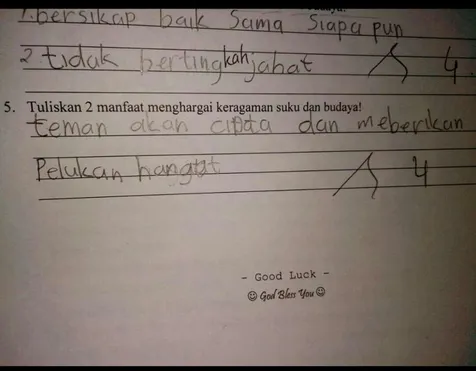 1. bersikap baik Sama Siapa pun
2 tidak bertingkah jahat 4
5. Tuliskan 2 manfaat menghargai keragaman suku dan budaya!
teman akan cinta dan meberikan
Pelukan hangat 4
- Good Luck -
☺ God Bless You ☺